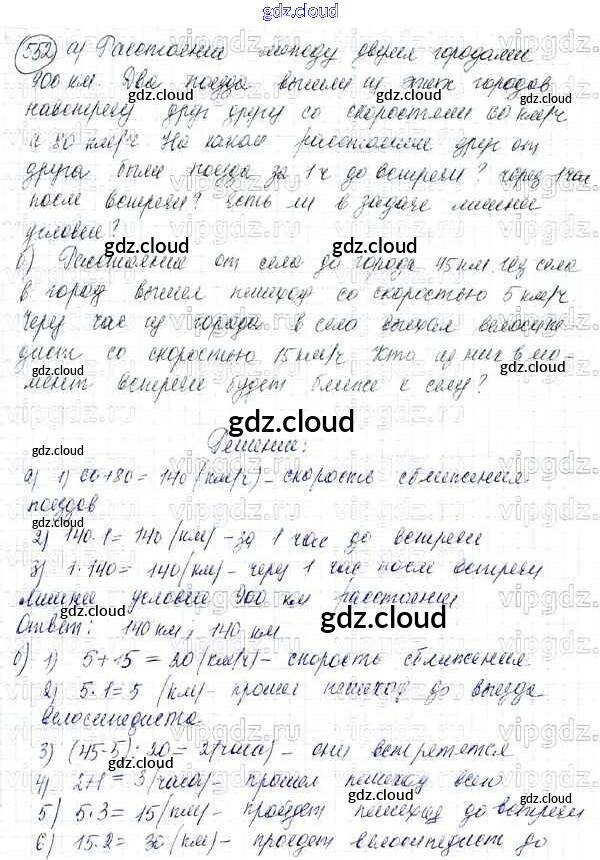 gdz.cloud
552 а) Расстояние между двумя городами
900 км. Два поезда вышли из этих городов
навстречу друг другу со скоростями 60 км/ч
и 80 км/ч. На каком расстоянии друг от
друга были поезда за 1 ч до встречи? через 1 час
после встречи? Есть ли в задаче лишние
условия?
б) Расстояние от села до города 45 км. Из села
в город вышел пешеход со скоростью 5 км/ч.
Через час из города в село выехал велосипе-
дист со скоростью 15 км/ч. Кто из них в мо-
мент встречи будет ближе к селу?
gdz.cloud
Решение:
а) 1) 60+80 = 140 (км/ч) – скорость сближения
поездов
2) 140·1 = 140 (км) – за 1 час до встречи
3) 1·140 = 140 (км) – через 1 час после встречи
Лишнее условие 900 км расстояние
Ответ: 140 км; 140 км.
б) 1) 5+15 = 20 (км/ч) – скорость сближения
2) 5·1 = 5 (км) – прошел пешеход до выезда
велосипедиста
3) (45-5):20 = 2 (часа) – они встретятся
4) 2+1 = 3 (часа) – прошел пешеход всего
5) 5·3 = 15 (км) – пройдет пешеход до встречи
6) 15·2 = 30 (км) – проедет велосипедист до